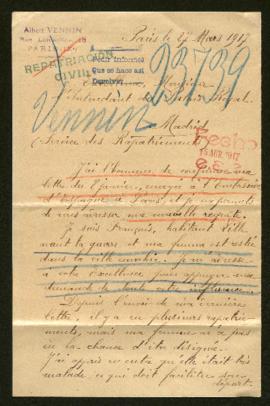 Albert VENNIN
Rue
PARIS
Paris le 27 Mars 1917
REPATRIACIÓN
CIVIL
Pedir informes
Que se hace así
23739
Vennin
Monsieur
l'Intendant du Palais Royal
Madrid
Service des Rapatriements
Hecho
15 ABR. 1917
J'ai l'honneur de
lettre du 8 janvier, envoyée à l'Ambassade
d'Espagne à Paris, et je me permets
de vous adresser ma nouvelle requête.
Je suis Français, habitant Lille
avant la guerre et ma femme est restée
dans la ville envahie. Je m'adresse
à votre Excellence pour appuyer ma
demande de toute votre
Depuis l'envoi de ma dernière
lettre, il y a eu plusieurs rapatrie-
ments, mais ma femme n'a pas
eu la chance d'être désignée.
J'ai appris en outre qu'elle était très
malade, ce qui doit faciliter son
départ.